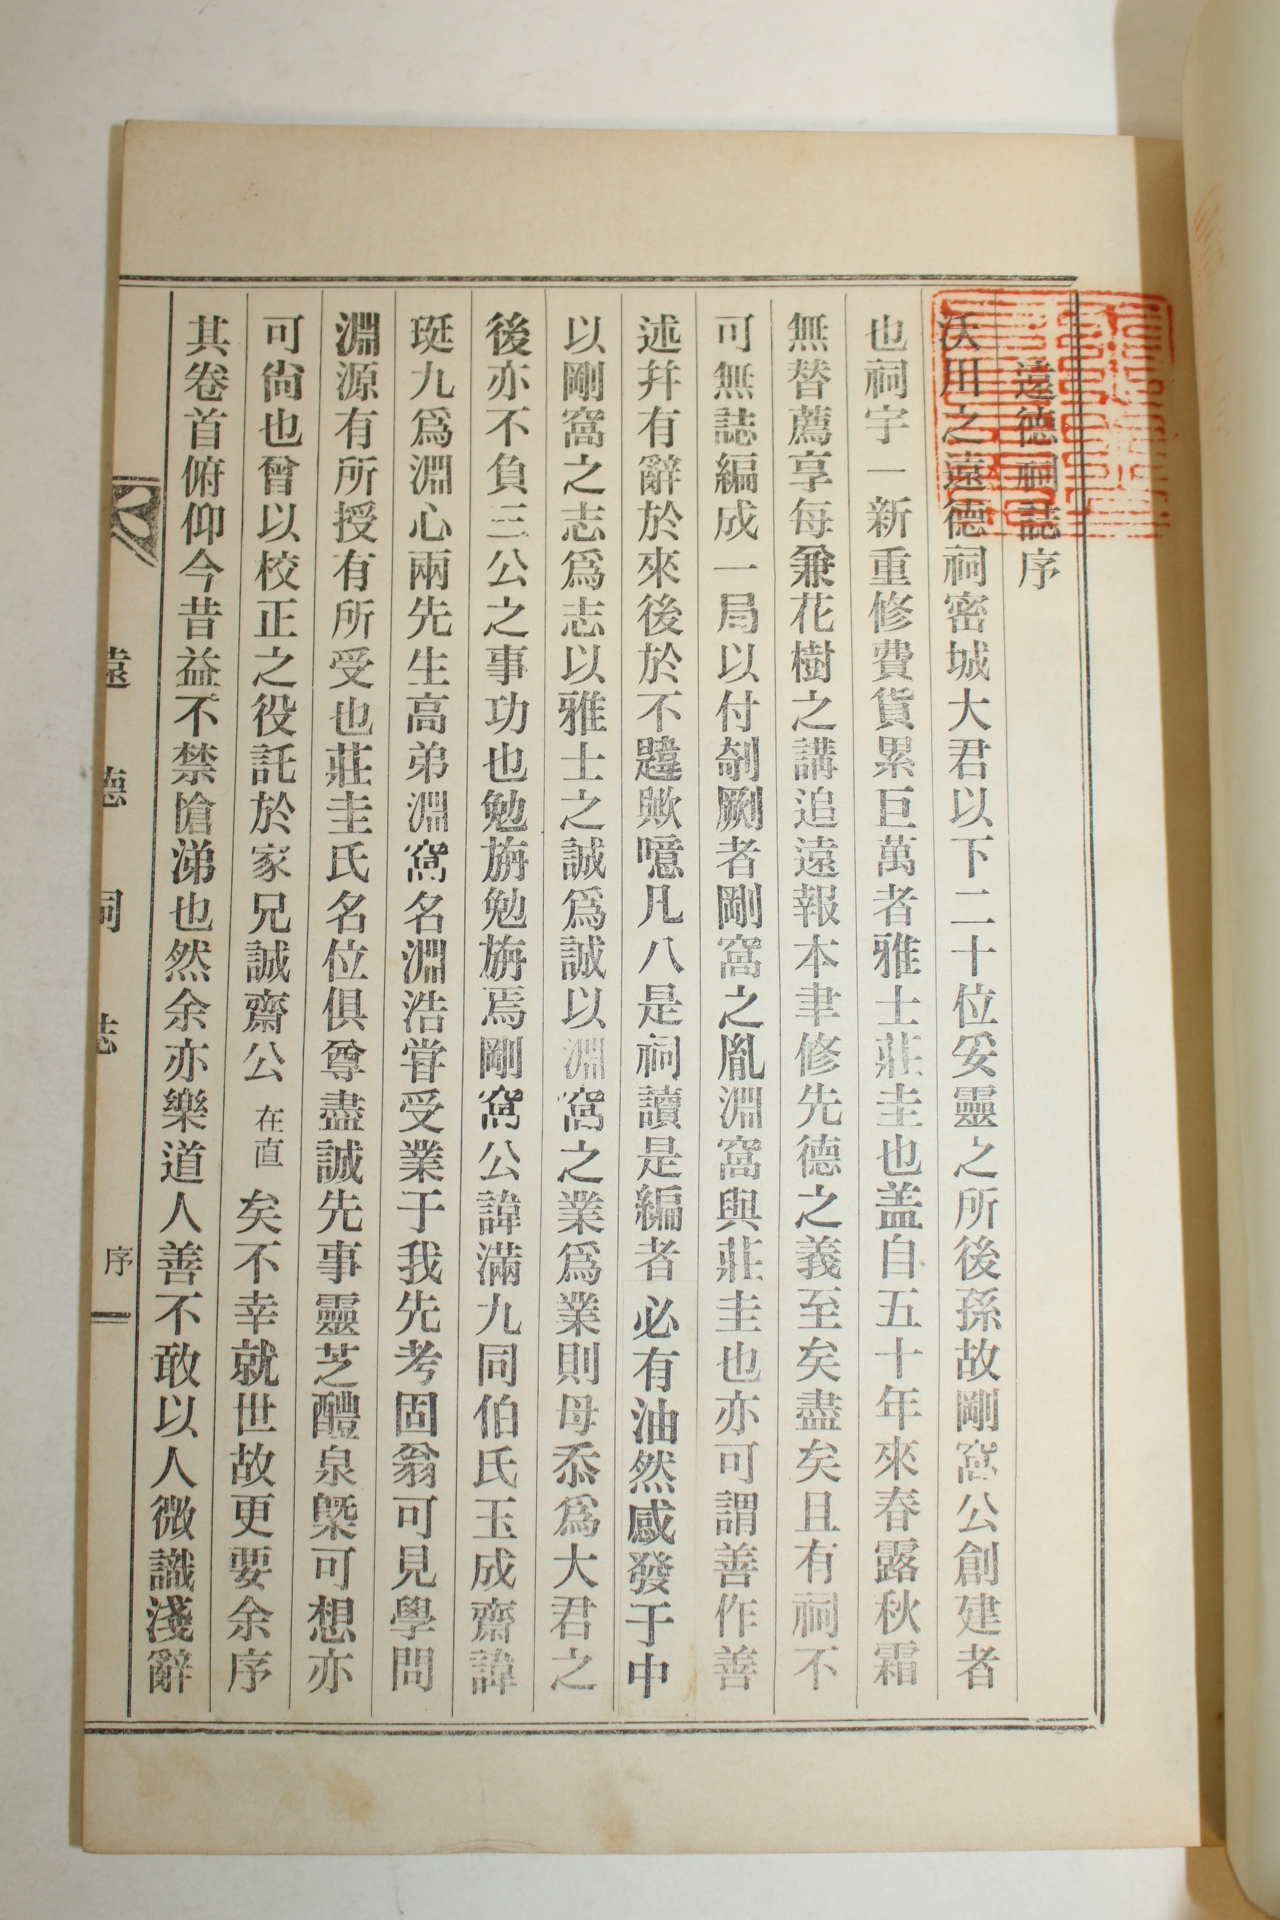 遠德祠誌序
沃川之遠德祠密城大君以下二十位妥靈之所後孫故剛窩公創建者
也祠宇一新重修費貨累巨萬者雅士莊圭也盖自五十年來春露秋霜
無替薦享每兼花樹之講追遠報本聿修先德之義至矣盡矣且有祠不
可無誌編成一局以付剞劂者剛窩之胤淵窩與莊圭也亦可謂善作善
述幷有辭於來後於不韙歟噫凡入是祠讀是編者必有油然感發于中
以剛窩之志爲志以雅士之誠爲誠以淵窩之業爲業則毋忝爲大君之
後亦不負三公之事功也勉旃勉旃焉剛窩公諱滿九同伯氏玉成齋諱
珽九爲淵心兩先生高弟淵窩名淵浩嘗受業于我先考固翁可見學問
淵源有所授有所受也莊圭氏名位俱尊盡誠先事靈芝醴泉槩可想亦
可尙也曾以校正之役託於家兄誠齋公在直矣不幸就世故更要余序
其卷首俯仰今昔益不禁愴涕也然余亦樂道人善不敢以人微識淺辭
遠德祠誌 序 一